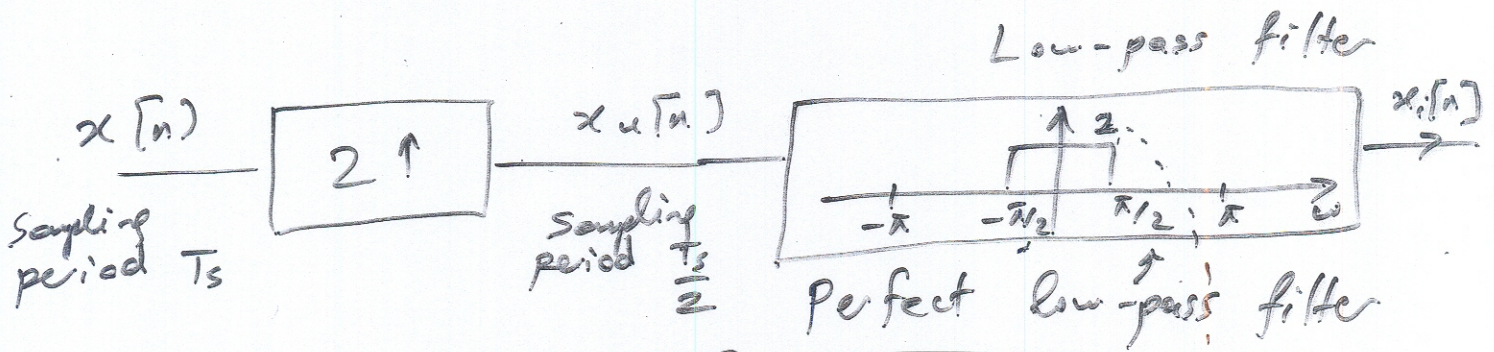 Low-pass filter
x[n)
2↑
x u[n]
2
xi[n]
-π
-π/2
π/2
π
ω
Sampling
period Ts
Sampling
period Ts/2
Perfect low-pass filter